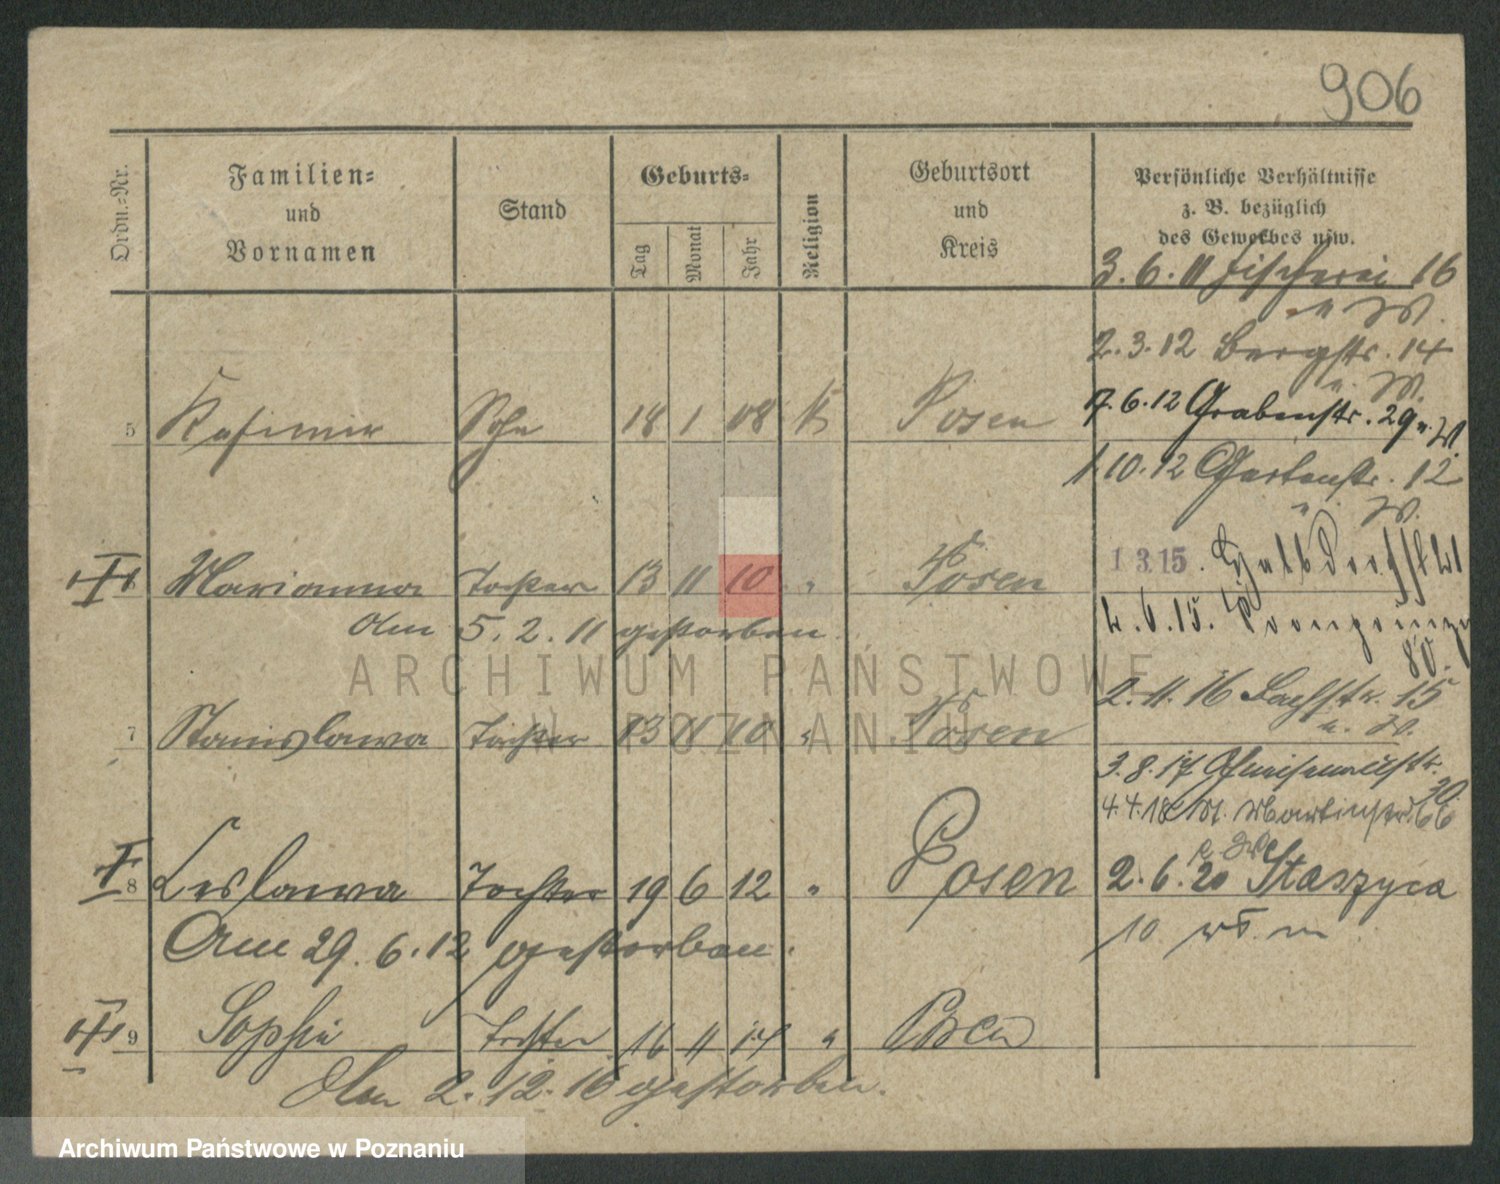 906
Ordn.-Nr.
Familien-
und
Vornamen
Stand
Geburts-
Tag
Monat
Jahr
Religion
Geburtsort
und
Kreis
Persönliche Verhältnisse
z. B. bezüglich
des Gewerbes usw.
3.6.11 Fischerei 16
u W.
2.3.12 Bergstr. 14
u. W.
5 Kasimir Sohn 18 1 08 K Posen
7.6.12 Grabenstr. 29 u. W.
1.10.12 Gartenstr. 12
u. W.
6 Marianna Tochter 13 11 10 " Posen
1 3. 15.
Am 5.2.11 gestorben.
2.6.15. Kronprinz
80.
ARCHIWUM PAŃSTWOWE
W POZNANIU
2.11.16 Bachstr. 15
u. W.
7 Stanislawa Tochter 13 11 10 " Posen
3.8.17 Gneisenaustr.
30
4.4.18 St. Martinstr. 66
8 Leslawa Tochter 19 6 12 " Posen
2.6.20 Staszyca
10
Am 29.6.12 gestorben.
9 Sophie Tochter 16 11 " Posen
Am 2.12.16 gestorben.
Archiwum Państwowe w Poznaniu